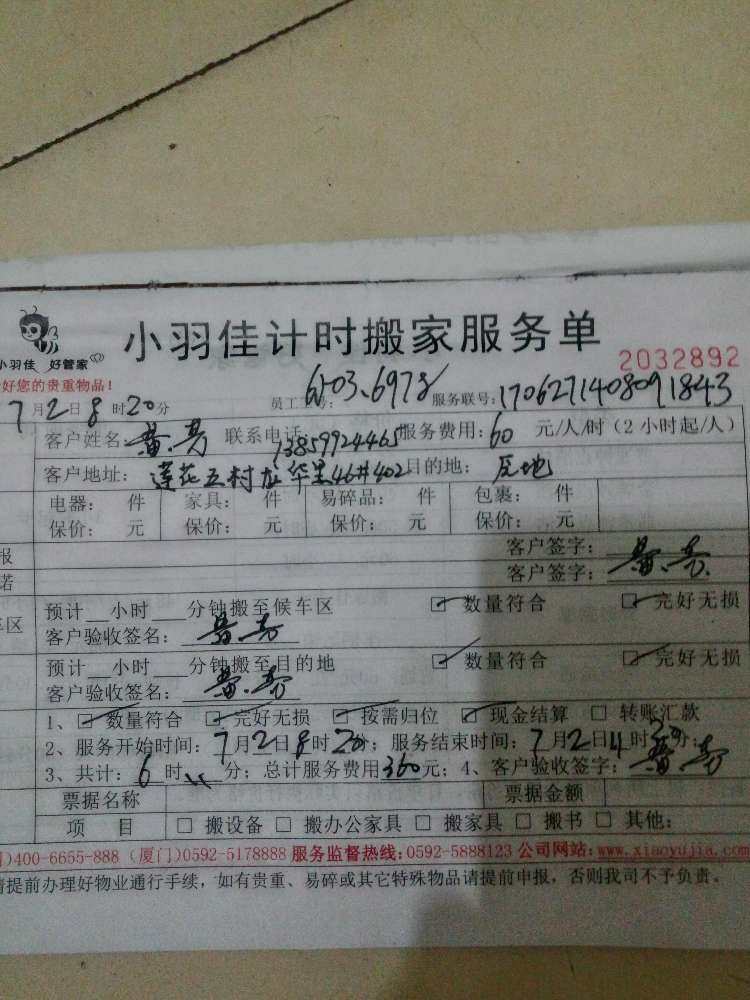 小羽佳计时搬家服务单
小羽佳 好管家
2032892
好您的贵重物品！
7月2日8时20分 员工工号：603、6978 服务联号：1706271408091843
客户姓名：黄亮 联系电话：13859924465 服务费用：60 元/人/时（2小时起/人）
客户地址：莲花五村龙华里46#402 目的地：原地
电器： 件 家具： 件 易碎品： 件 包裹： 件
保价： 元 保价： 元 保价： 元 保价： 元
报 客户签字：黄亮
诺 客户签字：
车区 预计__小时___分钟搬至候车区 ☑ 数量符合 ☑ 完好无损
客户验收签名：黄亮
预计__小时___分钟搬至目的地 ☑ 数量符合 ☑ 完好无损
客户验收签名：黄亮
1、☑ 数量符合 ☑ 完好无损 ☑ 按需归位 ☑ 现金结算 □ 转账汇款
2、服务开始时间：7月2日8时20分；服务结束时间：7月2日14时20分；
3、共计：6时 分；总计服务费用360元；4、客户验收签字：黄亮
票据名称 票据金额
项 目 □ 搬设备 □ 搬办公家具 □ 搬家具 □ 搬书 □ 其他：
)400-6655-888 (厦门)0592-5178888 服务监督热线:0592-5888123 公司网站:www.xiaoyujia.com
请提前办理好物业通行手续，如有贵重、易碎或其它特殊物品请提前申报，否则我司不予负责。